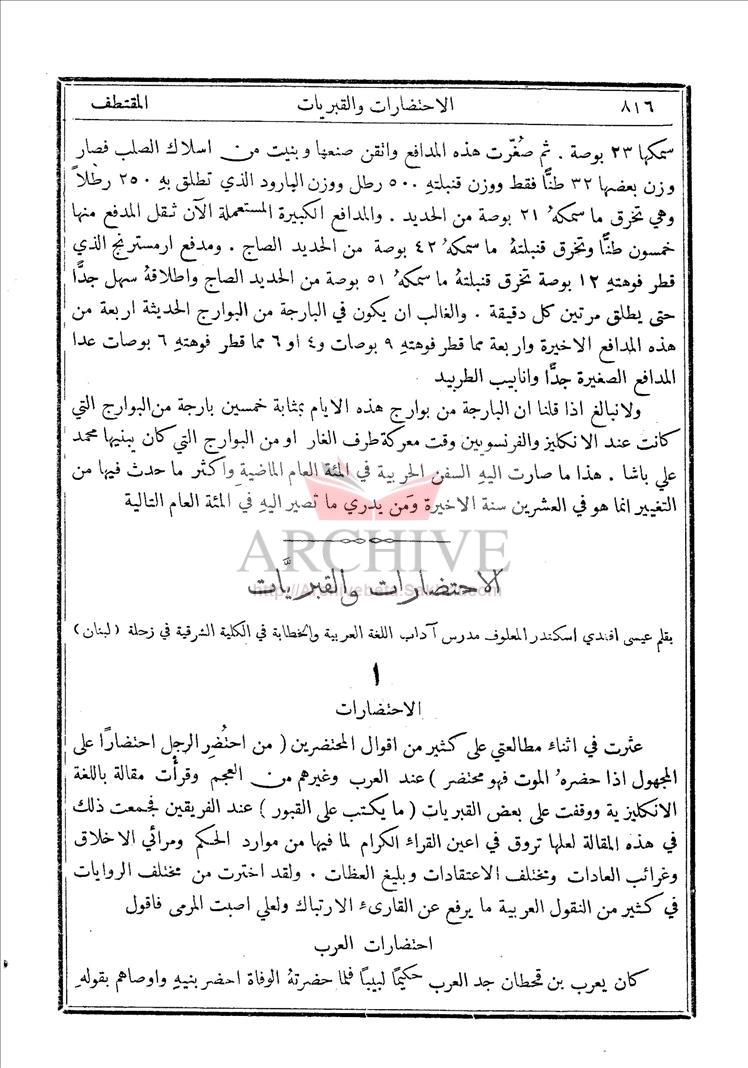 ٨١٦ الاحتضارات والقبريات المقتطف
سمكها ٢٣ بوصة . ثم صُغّرت هذه المدافع واتقن صنعها وبنيت من اسلاك الصلب فصار
وزن بعضها ٣٢ طنًّا فقط ووزن قنبلتهِ ٥٠٠ رطل ووزن البارود الذي تطلق بهِ ٢٥٠ رطلاً
وهي تخرق ما سمكهُ ٢١ بوصة من الحديد . والمدافع الكبيرة المستعملة الآن ثقل المدفع منها
خمسون طنًّا وتخرق قنبلتهُ ما سمكهُ ٤٢ بوصة من الحديد الصاج . ومدفع ارمسترنج الذي
قطر فوهتهِ ١٢ بوصة تخرق قنبلتهُ ما سمكهُ ٥١ بوصة من الحديد الصاج واطلاقهُ سهل جدًّا
حتى يطلق مرتين كل دقيقة . والغالب ان يكون في البارجة من البوارج الحديثة اربعة من
هذه المدافع الاخيرة واربعة مما قطر فوهتهِ ٩ بوصات و٤ او ٦ مما قطر فوهتهِ ٦ بوصات عدا
المدافع الصغيرة جدًّا وانابيب الطربيد
ولا نبالغ اذا قلنا ان البارجة من بوارج هذه الايام بمثابة خمسين بارجة من البوارج التي
كانت عند الانكليز والفرنسويين وقت معركة طرف الغار او من البوارج التي كان يبنيها محمد
علي باشا . هذا ما صارت اليهِ السفن الحربية في المئة العام الماضية واكثر ما حدث فيها من
التغيير انما هو في العشرين سنة الاخيرة ومَن يدري ما تصير اليهِ في المئة العام التالية
ARCHIVE
الاحتضارات والقبريَّات
بقلم عيسى افندي اسكندر المعلوف مدرس آداب اللغة العربية والخطابة في الكلية الشرقية في زحلة ( لبنان )
١
الاحتضارات
عثرت في اثناء مطالعتي على كثير من اقوال المحتضرين ( من احتُضِر الرجل احتضارًا على
المجهول اذا حضرهُ الموت فهو محتضر ) عند العرب وغيرهم من العجم وقرأْت مقالة باللغة
الانكليزية ووقفت على بعض القبريات ( ما يكتب على القبور ) عند الفريقين فجمعت ذلك
في هذه المقالة لعلها تروق في اعين القراء الكرام لما فيها من موارد الحكم ومرائي الاخلاق
وغرائب العادات ومختلف الاعتقادات وبليغ العظات . ولقد اخترت من مختلف الروايات
في كثير من النقول العربية ما يرفع عن القارىء الارتباك ولعلي اصبت المرمى فاقول
احتضارات العرب
كان يعرب بن قحطان جد العرب حكيمًا لبيبًا فلما حضرتهُ الوفاة احضر بنيهِ واوصاهم بقولهِ